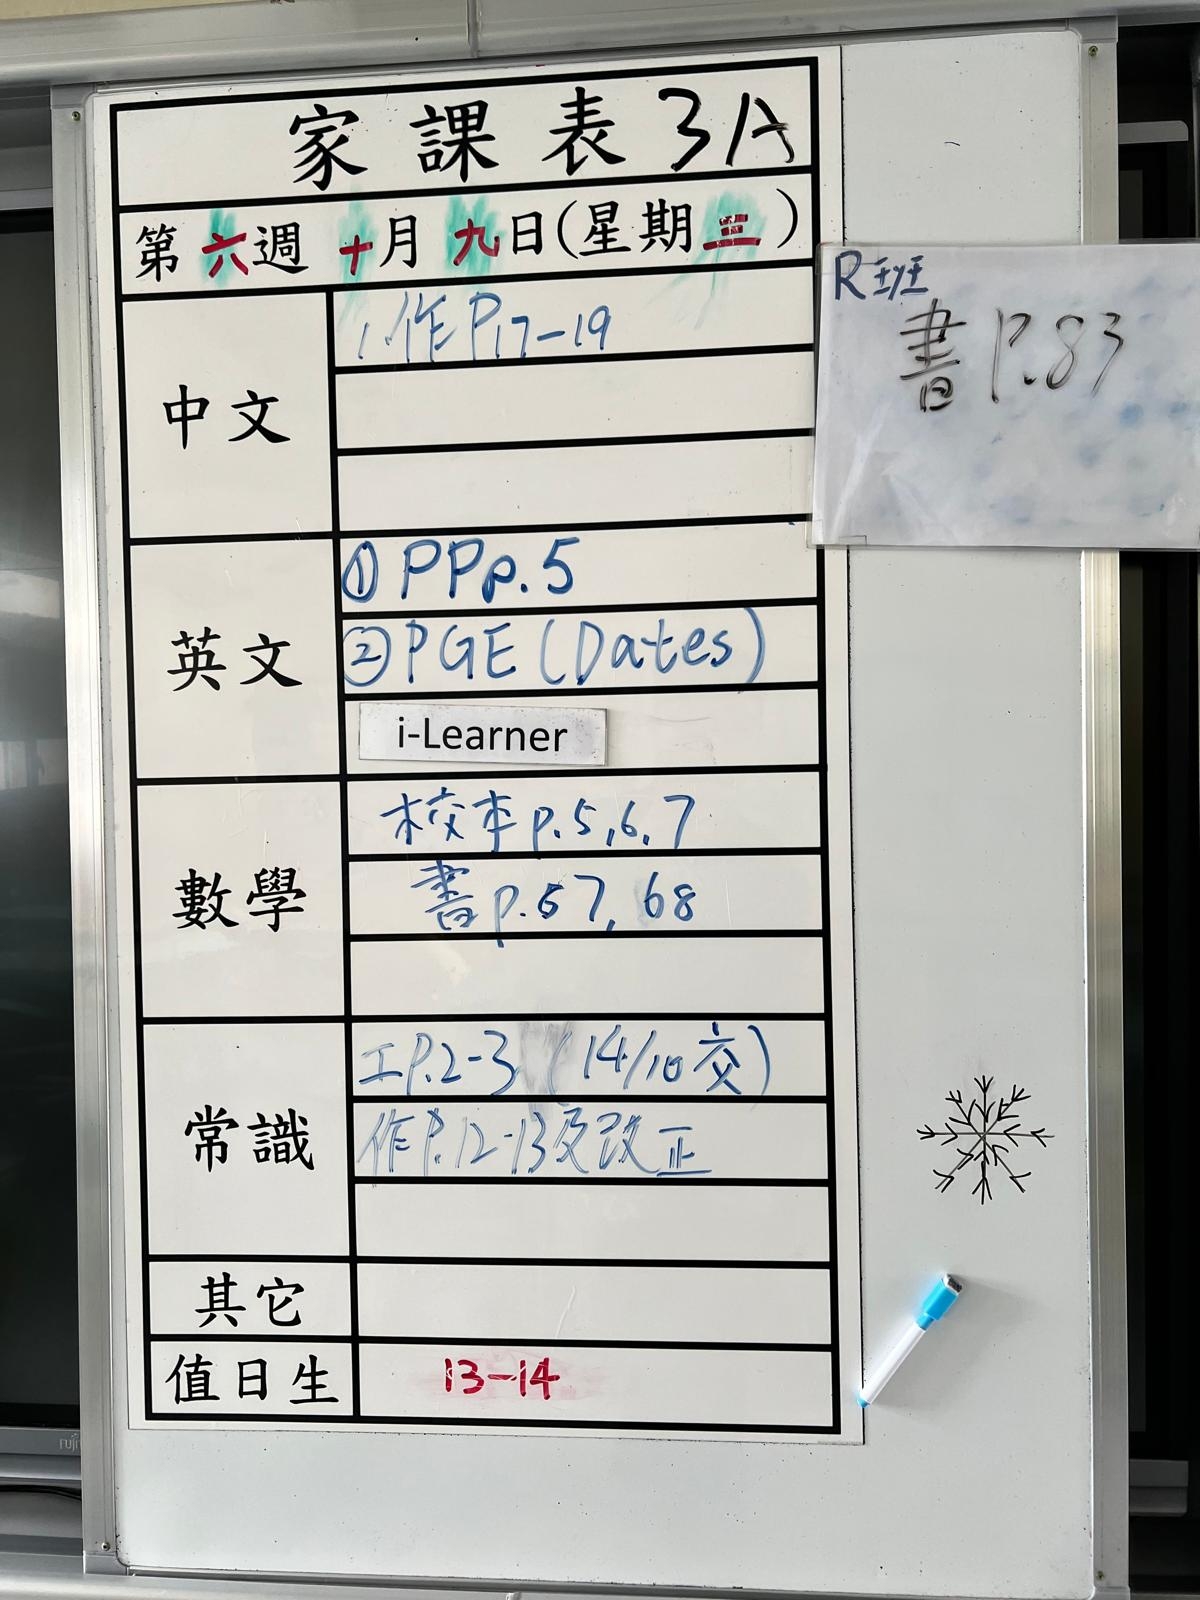 家課表 3A
第六週 十月九日(星期三)
R班
書 P.83
中文
1. 作 P.17-19
英文
① PP p.5
② PGE (Dates)
i-Learner
數學
校本 p.5,6,7
書 p.57, 68
常識
工 P.2-3 (14/10 交)
作 P.12-13及改正
其它
值日生
13-14